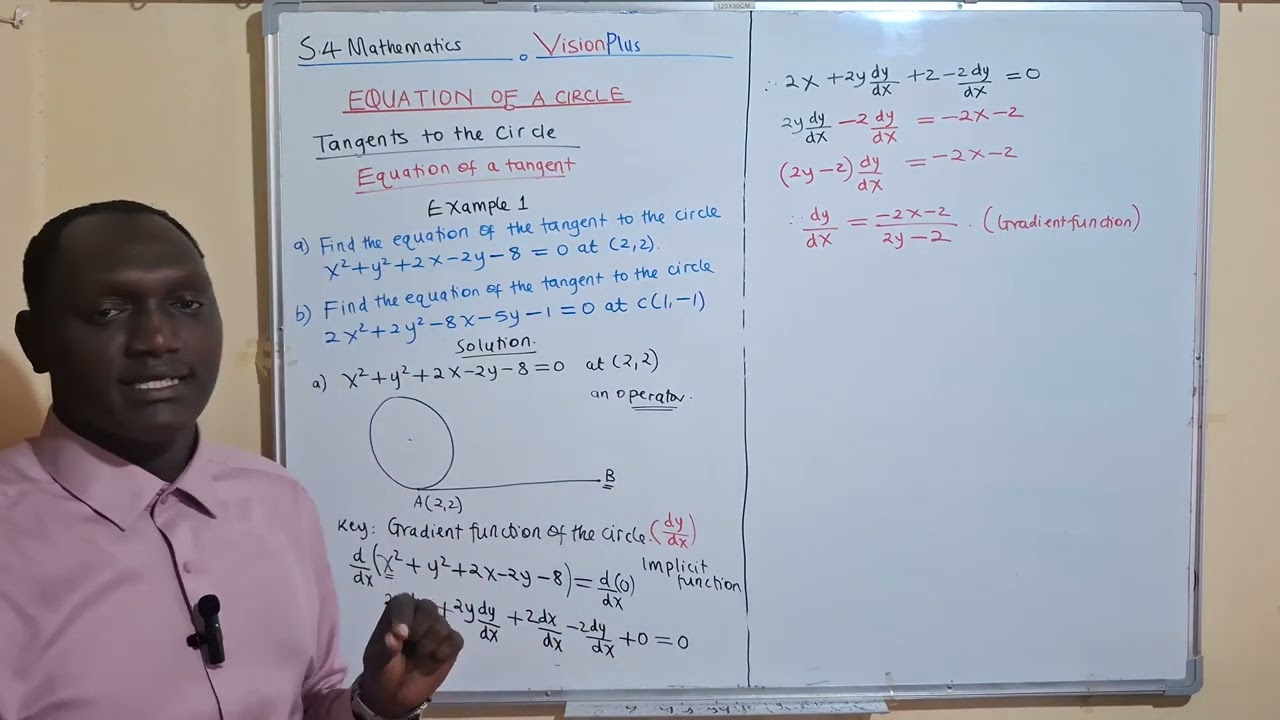 120X90CM
S.4 Mathematics
VisionPlus
EQUATION OF A CIRCLE
Tangents to the Circle
Equation of a tangent
Example 1
a) Find the equation of the tangent to the circle
x² + y² + 2x - 2y - 8 = 0 at (2,2).
b) Find the equation of the tangent to the circle
2x² + 2y² - 8x - 5y - 1 = 0 at C(1,-1)
Solution.
a) x² + y² + 2x - 2y - 8 = 0 at (2,2)
an operator.
B
A(2,2)
Key: Gradient function of the circle. (dy/dx)
d/dx (x² + y² + 2x - 2y - 8) = d(0)/dx
Implicit
function
+ 2y dy/dx + 2dx/dx - 2dy/dx + 0 = 0
∴ 2x + 2y dy/dx + 2 - 2dy/dx = 0
2y dy/dx - 2 dy/dx = -2x - 2
(2y - 2) dy/dx = -2x - 2
∴ dy/dx = -2x - 2 / 2y - 2 . (Gradient function)